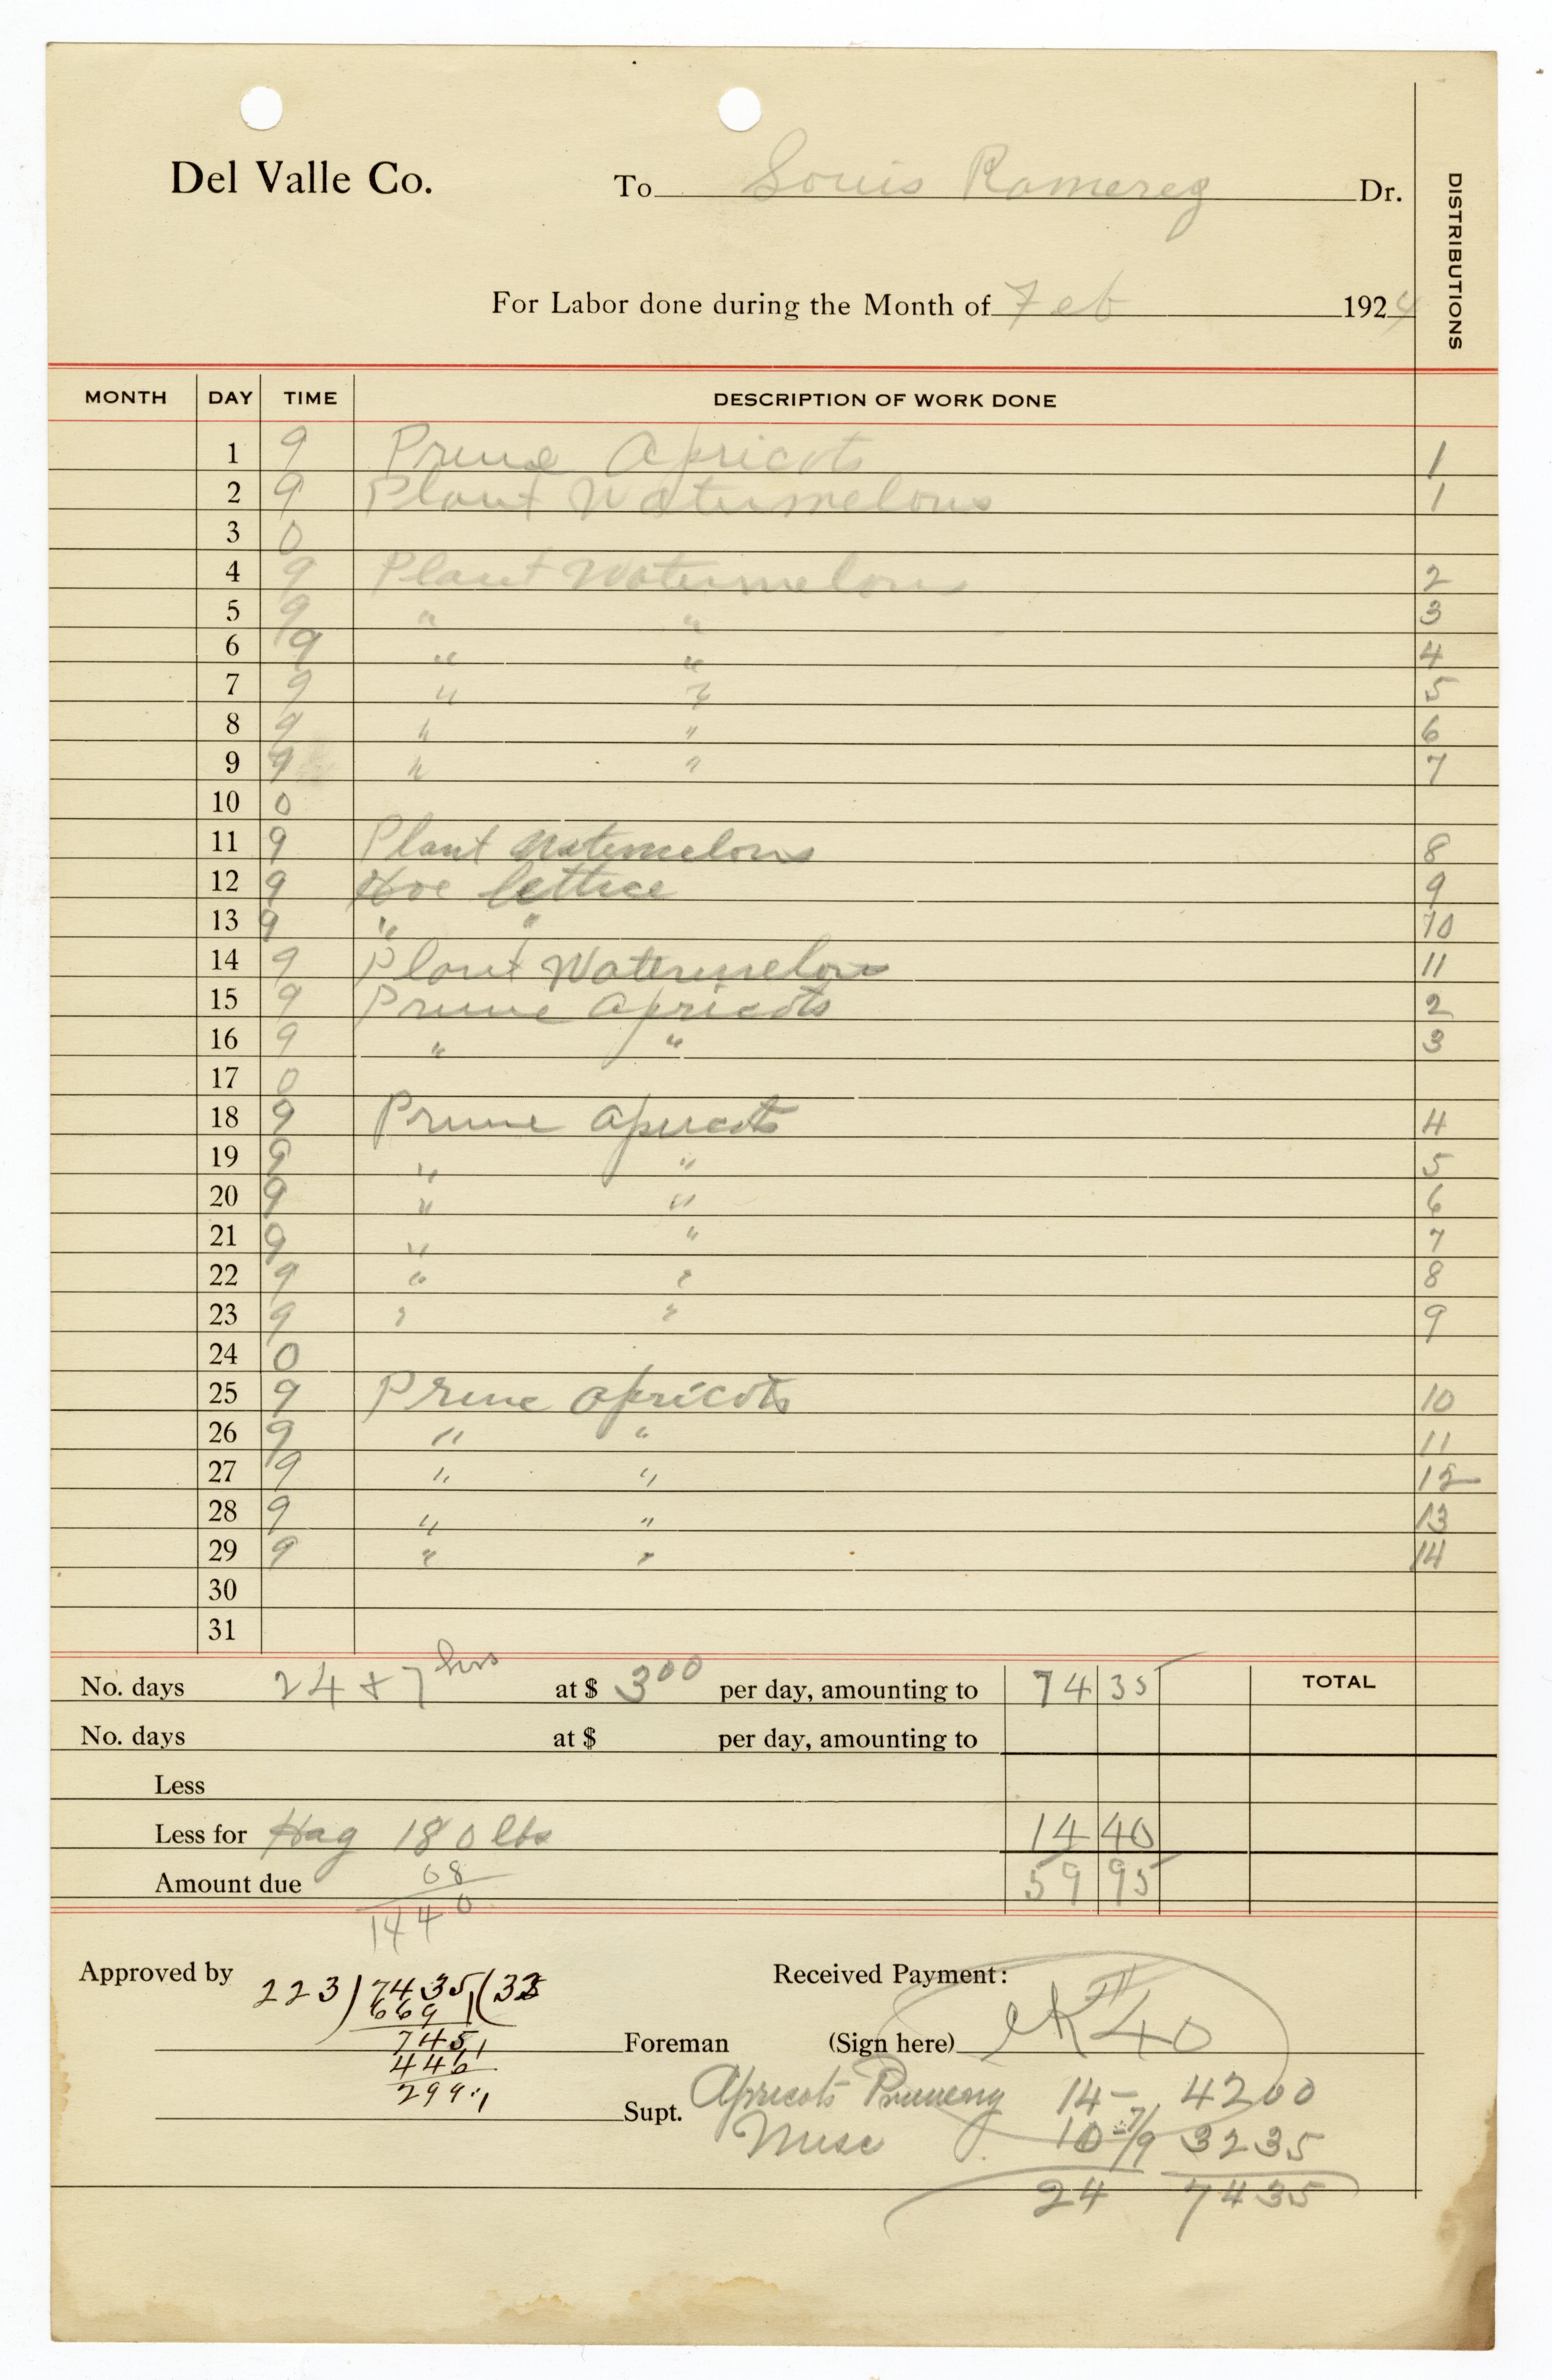 Del Valle Co. To Louis Ramereg Dr.
DISTRIBUTIONS
For Labor done during the Month of Feb 1924
MONTH DAY TIME DESCRIPTION OF WORK DONE
1 9 Prune Apricots 1
2 9 Plant Watermelons 1
3 0
4 9 Plant Watermelons 2
5 9 " " 3
6 9 " " 4
7 9 " " 5
8 9 " " 6
9 9 " " 7
10 0
11 9 Plant Watemelons 8
12 9 Hoe lettice 9
13 9 " " 10
14 9 Plant Watermelons 11
15 9 Prune apricots 2
16 9 " " 3
17 0
18 9 Prune apricots 4
19 9 " " 5
20 9 " " 6
21 9 " " 7
22 9 " " 8
23 9 " " 9
24 0
25 9 Prune apricots 10
26 9 " " 11
27 9 " " 12
28 9 " " 13
29 9 " " 14
30
31
No. days 24 & 7 hrs at $ 3 00 per day, amounting to 74 35 TOTAL
No. days at $ per day, amounting to
Less
Less for Hag 180 lbs 14 40
08
Amount due 59 95
14 40
Approved by 223)7435(33 Received Payment:
669
745
Foreman (Sign here) CK # 40
446
299
Supt. Apricots Pruneing 14 - 42 00
Misc 10 - 7/9 32 35
24 74 35